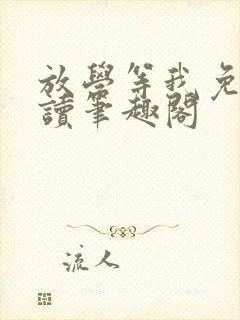 放學等我免
讀筆趣閣
流人